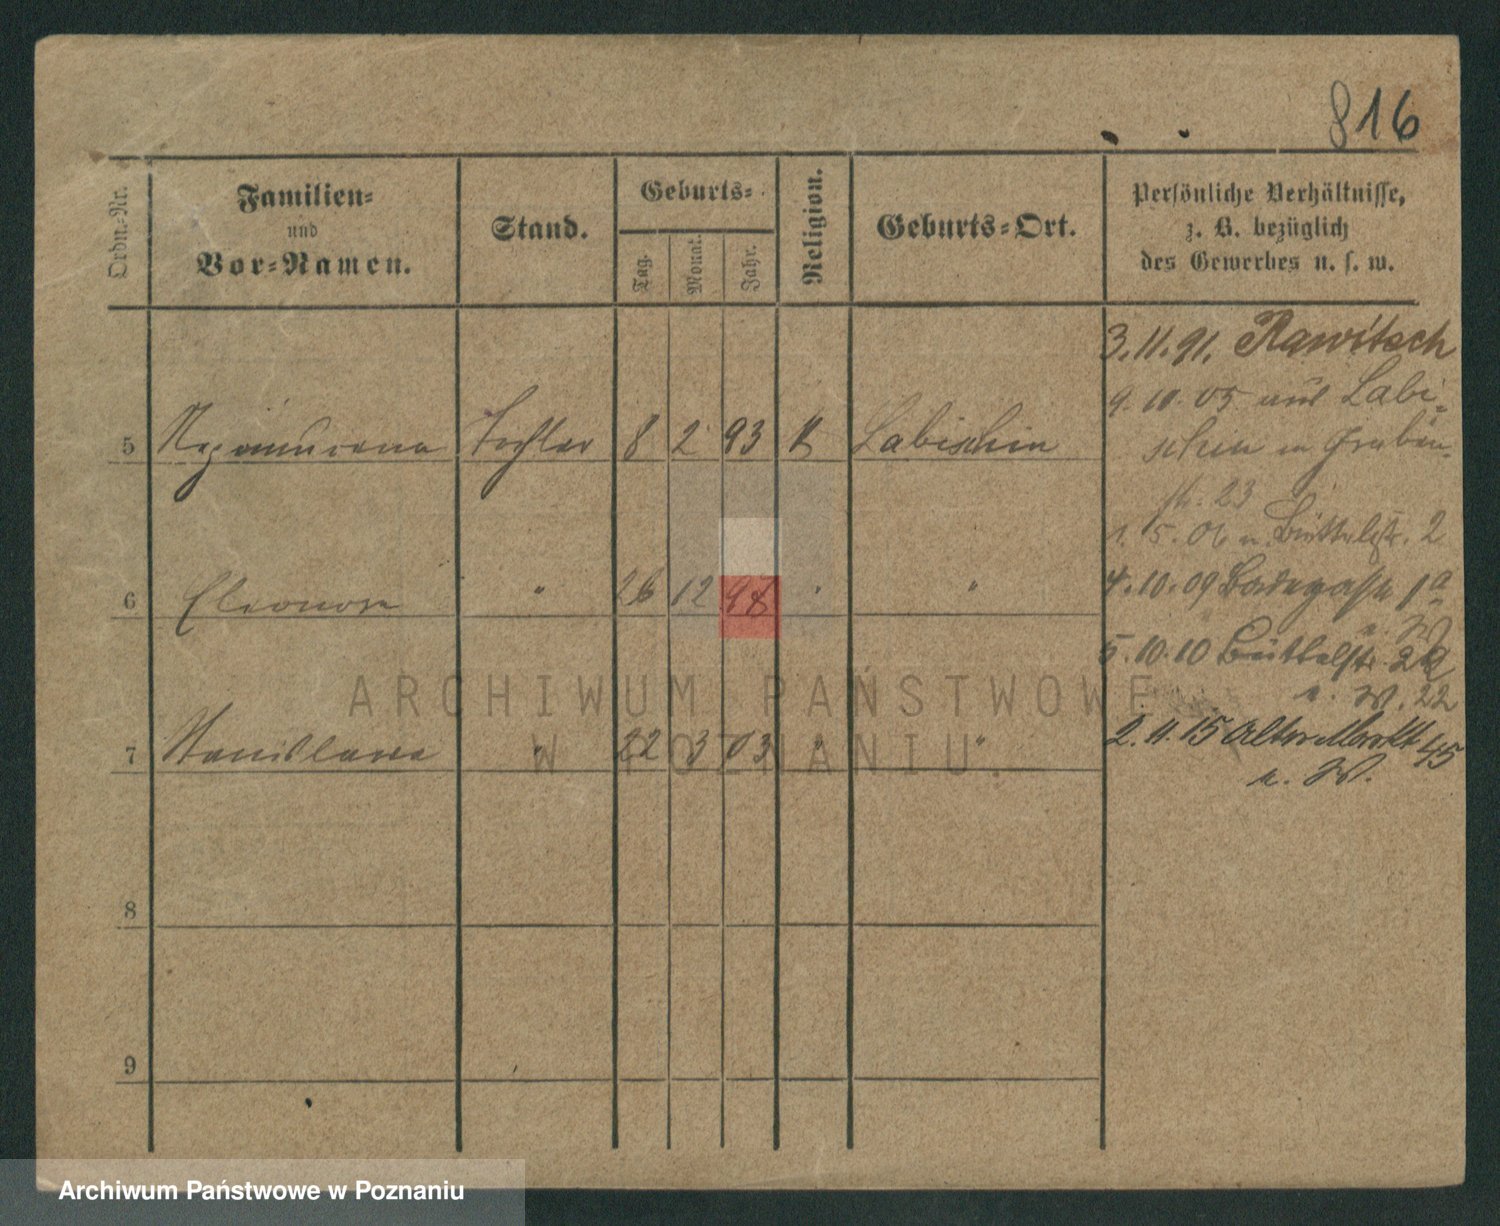 816
Ordn.-Nr.
Familien-
und
Vor-Namen.
Stand.
Geburts-
Tag.
Monat.
Jahr.
Religion.
Geburts-Ort.
Persönliche Verhältnisse,
z. B. bezüglich
des Gewerbes u. s. w.
3.11.91. Rawitsch
9.10.05 aus Labi-
schin n Graben-
str. 23
5 Nepomucena Tochter 8 2 93 K Labischin
1.5.06 n. Büttelstr. 2
6 Eleonore " 26 12 98 " "
4.10.09 Badegasse 1a
5.10.10 Büttelstr.
n. W. 22
7 Stanislawa " 22 3 03 " "
2.11.15 Alter Markt 45
n. W.
8
9
ARCHIWUM PAŃSTWOWE
W POZNANIU.
Archiwum Państwowe w Poznaniu